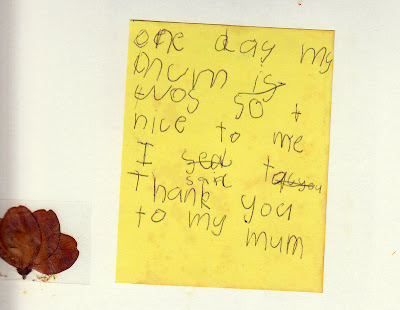 one day my
mum is
was so t
nice to me
I said ta
Thank you
to my mum